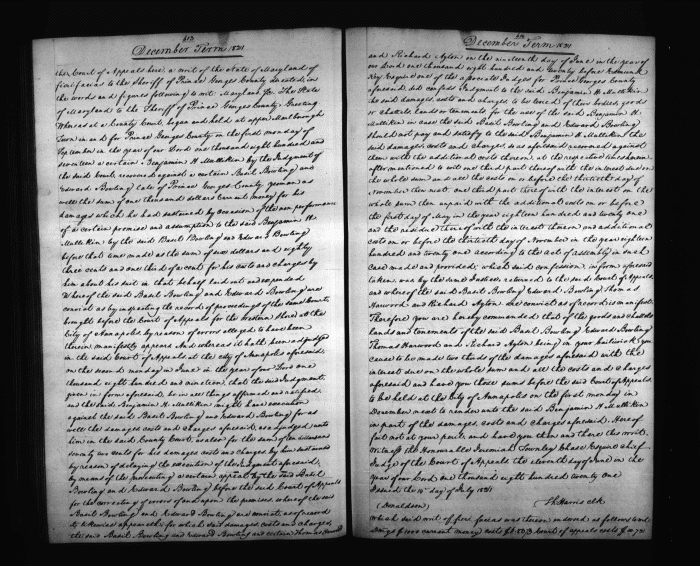 December Term 1821
the Court of Appeals here, a writ of the State of Maryland of
fieri facias to the Sheriff of Prince Georges County directed, in
the words and figures following to wit. Maryland Sc. The State
of Maryland to the Sheriff of Prince Georges County, Greeting
Whereas at a County Court, began and held at upper Marlborough
Town in and for Prince Georges County on the first monday of
September in the year of our Lord one thousand eight hundred and
seventeen a certain Benjamin H Mullikin by the Judgment of
the said Court recovered against a certain Basil Bowling and
Edward Bowling late of Prince Georges County yeoman as
well the sum of one thousand dollars current money for his
damages which he had sustained by occasion of the non performance
of a certain promise and assumption to the said Benjamin H
Mullikin by the said Basil Bowling and Edward Bowling
before that time made as the sum of dollars and eighty
three cents and one third of a cent for his costs and charges by
him about his suit in that behalf laid out and expended
Whereof the said Basil Bowling and Edward Bowling are
convict as by inspecting the record of proceedings of the same Court,
brought before the Court of Appeals for the Western Shore at the
City of Annapolis by reason of errors alledged to have been
therein manifestly appears And whereas it hath been adjudged
in the said Court of Appeals at the city of Annapolis aforesaid,
on the second monday in June in the year of our Lord one
thousand eight hundred and nineteen, that the said Judgment,
given in form aforesaid, be in all things affirmed and ratified,
and the said Benjamin H. Mullikin might have execution
against the said Basil Bowling and Edward Bowling for as
well the damages costs and charges aforesaid, as adjudged unto
him in the said County Court, as also for the sum of ten dollars and
seventy two cents for his damages costs and charges, by him sustained
by reason of delaying the execution of the Judgment aforesaid,
by means of the prosecuting a certain appeal by the said Basil
Bowling and Edward Bowling before the said Court of Appeals
for the correcting of errors of and upon the premises whereof the said
Basil Bowling and Edward Bowling are convict as of record
to them is apparent; for which said damages costs and charges,
the said Basil Bowling and Edward Bowling and certain Thomas Harwood
December Term 1821
and Richard Ayton on the nineteenth day of June in the year of
our Lord one thousand eight hundred and twenty before Edmund
Key Esquire one of the associate Judges for Prince Georges County
aforesaid, did confess Judgment to the said Benjamin H. Mullikin
the said damages, costs and charges to be levied of their bodies goods
or chattels lands or tenements for the use of the said Benjamin H.
Mullikin in case the said Basil Bowling and Edward Bowling
should not pay and satisfy to the said Benjamin H Mullikin the
said damages costs and charges so as aforesaid recovered against
them with the additional costs thereon at the repective times herein
after mentioned to wit one third part thereof with the interest due on
the whole sum and all the costs on or before the thirtieth day of
November then next one third part thereof with the interest on the
whole sum then unpaid with the additional costs on or before
the first day of may in the year eighteen hundred and twenty one
and the residue thereof with the interest thereon and additional
costs on or before the thirtieth day of November in the year eighteen
hundred and twenty one according to the act of assembly in such
case made and provided, which said confession, in form aforesaid
taken was by the Justices returned to the said Court of Appeals,
and whereof the said Basil Bowling Edward Bowling Thomas
Harwood and Richard Ayton are convict as of record is manifest.
Therefore you are hereby commanded that of the goods and chattels
lands and tenements of the said Basil Bowling Edward Bowling
Thomas Harwood and Richard Ayton being in your bailiwick you
cause to be made two thirds of the damages aforesaid with the
interest due on the whole sum and all the costs and charges
aforesaid and have you those sums before the said Court of Appeals
to be held at the City of Annapolis on the first monday in
December next to render unto the said Benjamin H. Mullikin
in part of the damages, costs and charges aforesaid. Hereof
fail not at your peril, and have you then and there this writ.
Witness the Honourable Jeremiah Townley Chase Esquire chief
Judge of the Court of Appeals the eleventh day of June in the
year of our Lord one thousand eight hundred twenty one
Issued the day of July 1821
(Donaldson) Th Harris clk
which said writ of fieri facias was thereon indorsed as follows to wit